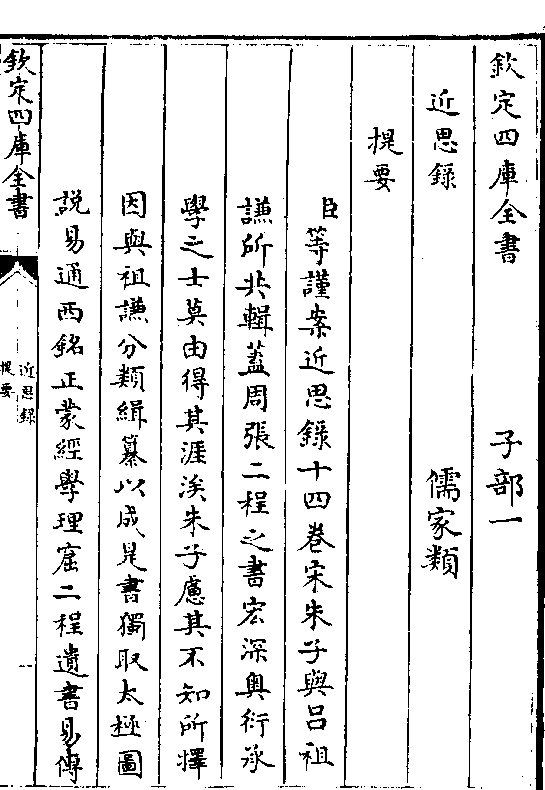 欽定四庫全書　子部一
近思錄　儒家類
提要
臣等謹案近思錄十四卷宋朱子與呂祖
謙所共輯蓋周張二程之書宏深奧衍承
學之士莫由得其涯涘朱子慮其不知所擇
因與祖謙分類緝纂以成是書獨取太極圖
説易通西銘正蒙經學理窟二程遺書易傳
欽定四庫全書
近思錄
提要
一